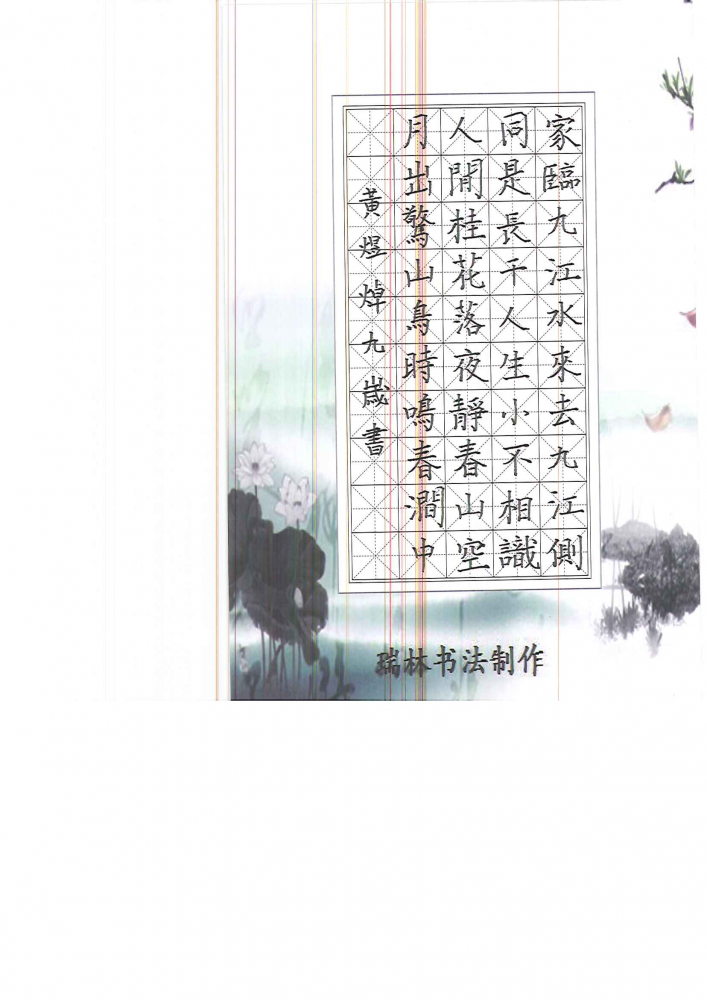 家臨九江水來去九江側
同是長干人生小不相識
人閒桂花落夜靜春山空
月出驚山鳥時鳴春澗中
黃煜焯九歲書
瑞林书法制作